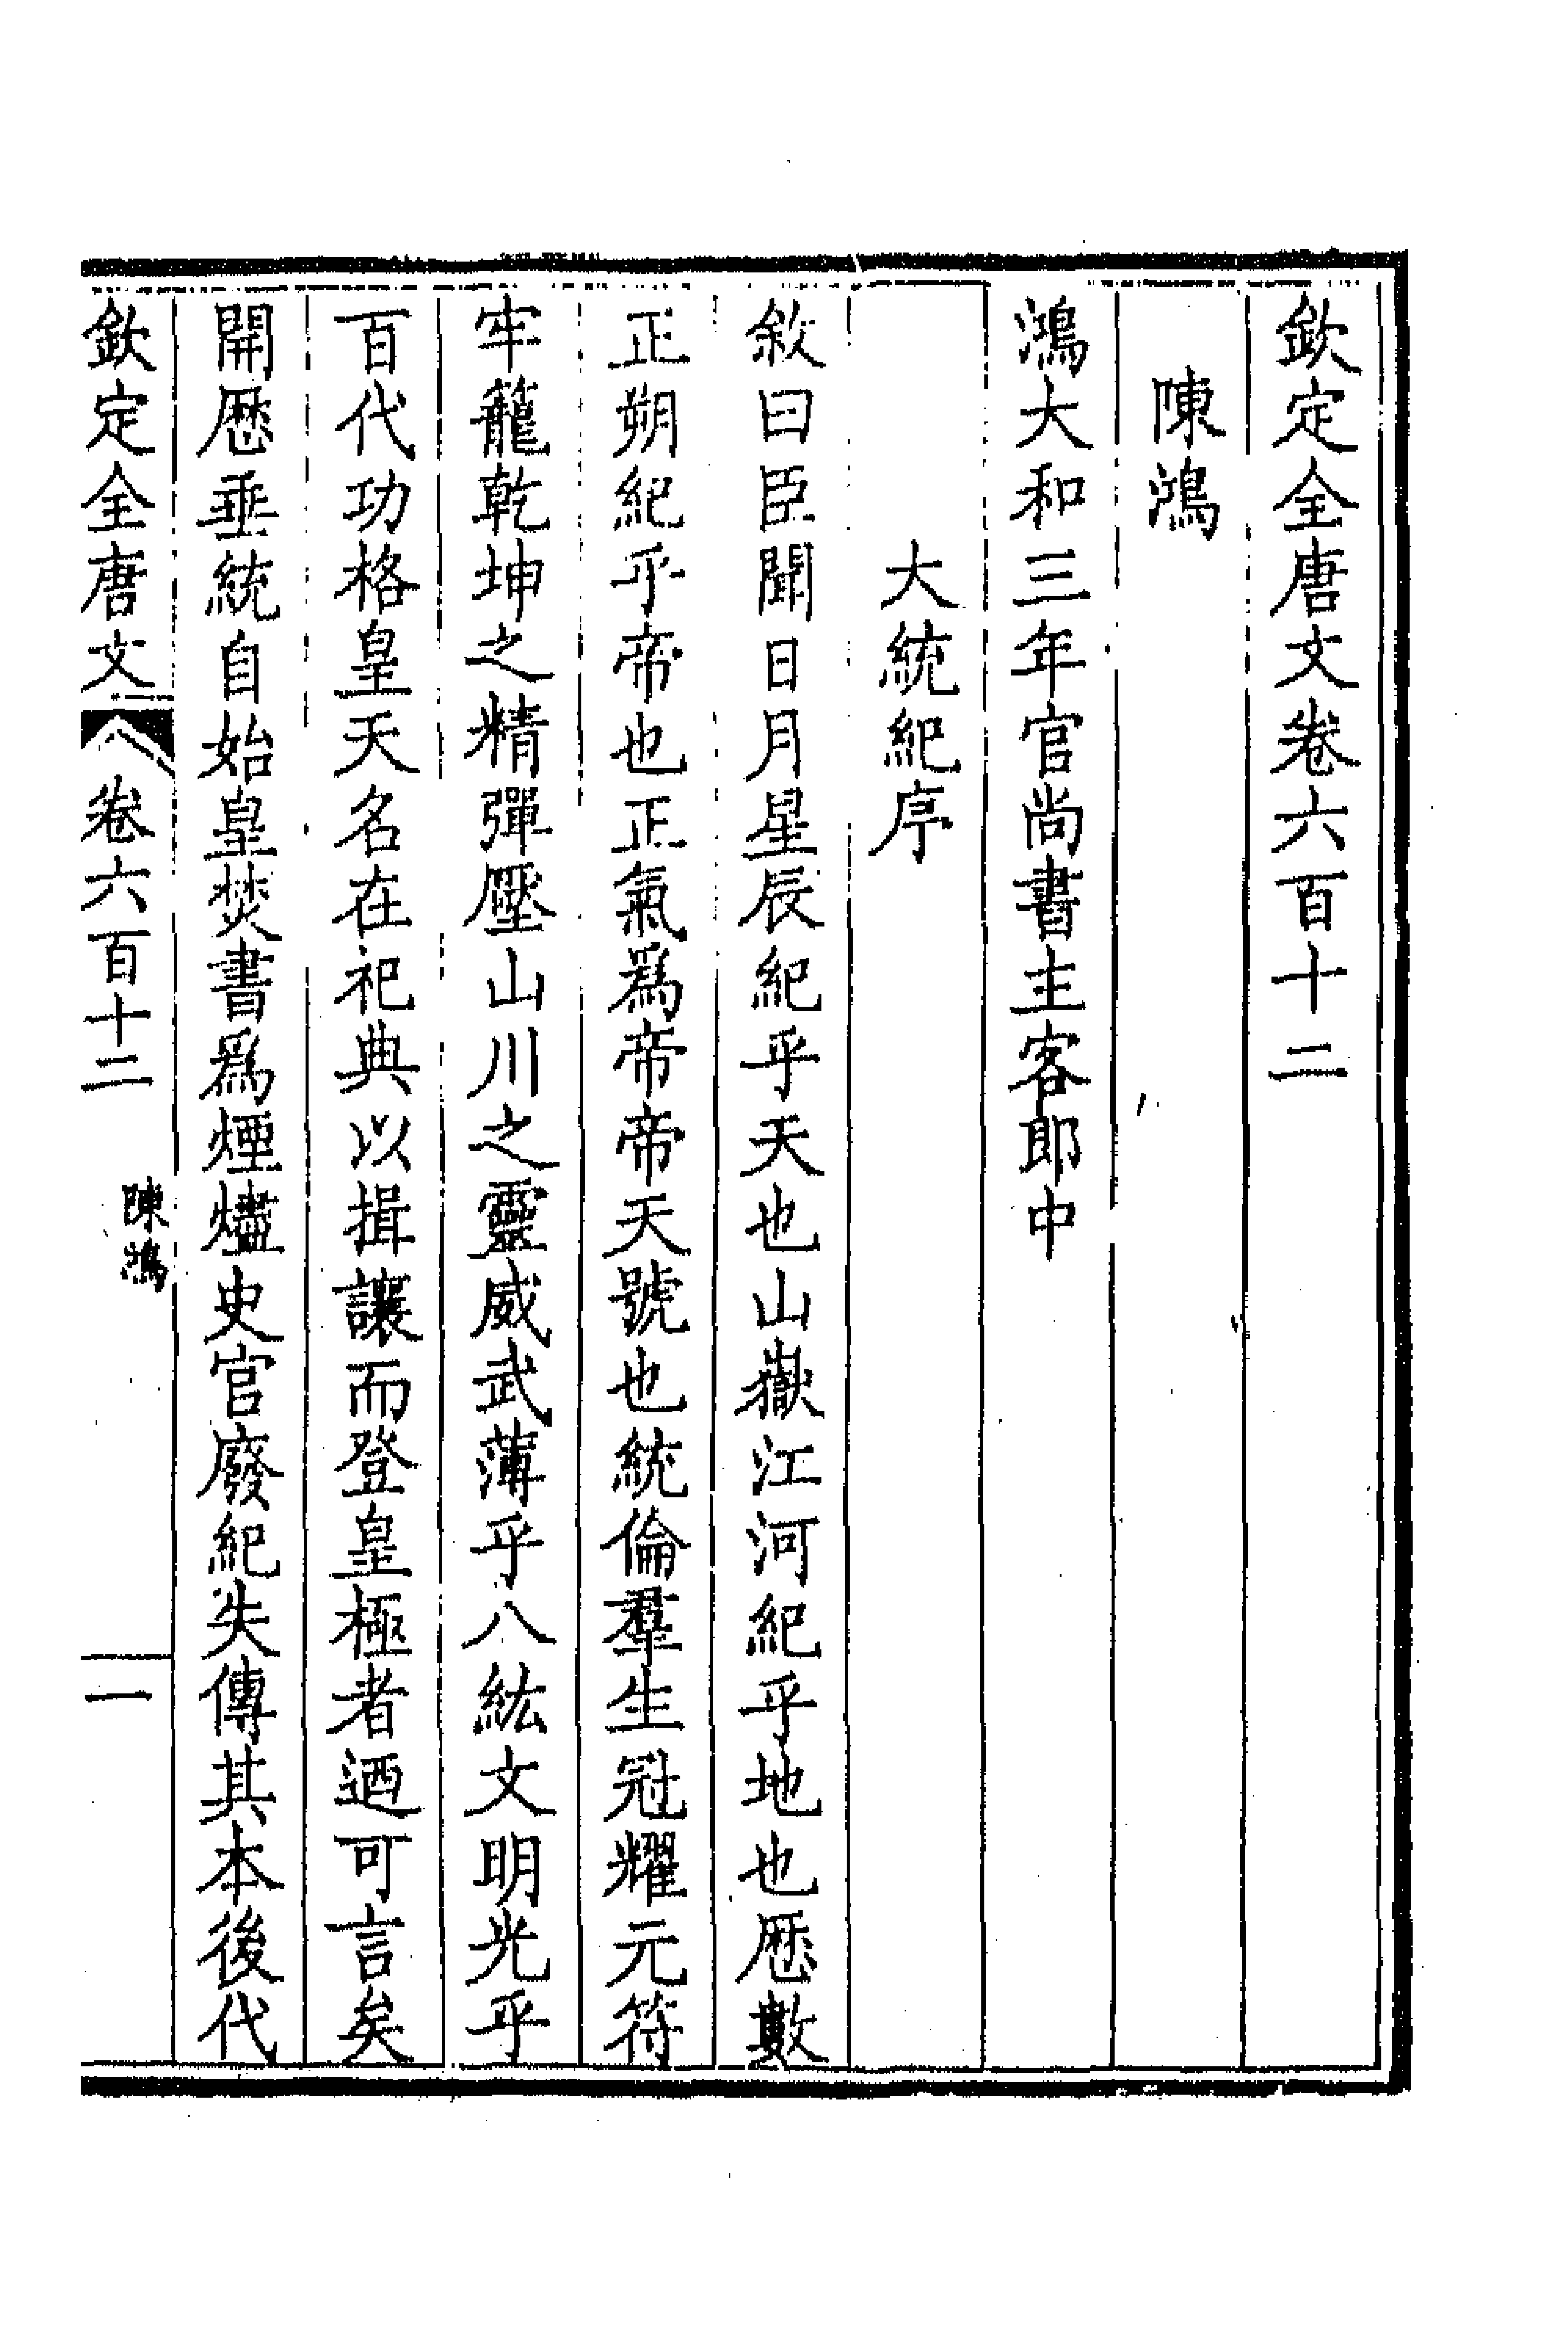 欽定全唐文卷六百十二
陳鴻
鴻大和三年官尚書主客郎中
大統紀序
敘曰臣聞日月星辰紀乎天也山嶽江河紀乎地也厯數
正朔紀乎帝也正氣爲帝帝天號也統倫羣生冠耀元符
牢籠乾坤之精彈壓山川之靈威武薄乎八紘文明光乎
百代功格皇天名在祀典以揖讓而登皇極者迺可言矣
開厯垂統自始皇焚書爲煙燼史官廢紀失傳其本後代
欽定全唐文 卷六百十二 陳鴻 一